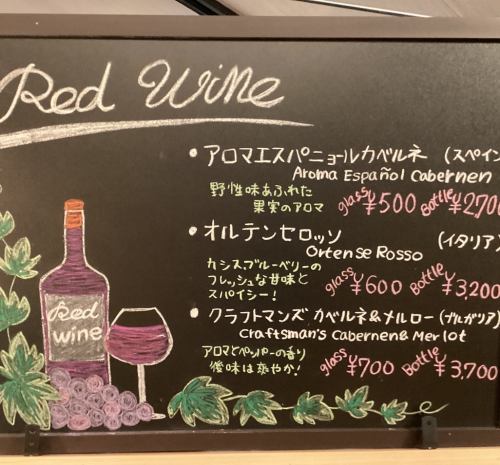 Red Wine
• アロマエスパニョールカベルネ (スペイン
Aroma Español Cabernen
野性味あふれた
果実のアロマ
glass ¥500 Bottle ¥2700
• オルテンセロッソ (イタリア)
Ortense Rosso
カシス、ブルーベリーの
フレッシュな甘味と
スパイシー!
glass ¥600 Bottle ¥3,200
• クラフトマンズ カベルネ&メルロー (ブルガリア)
Craftsman's Cabernen& Merlot
アロマとペッパーの香り
後味は爽やか!
glass ¥700 Bottle ¥3,700
Red
wine